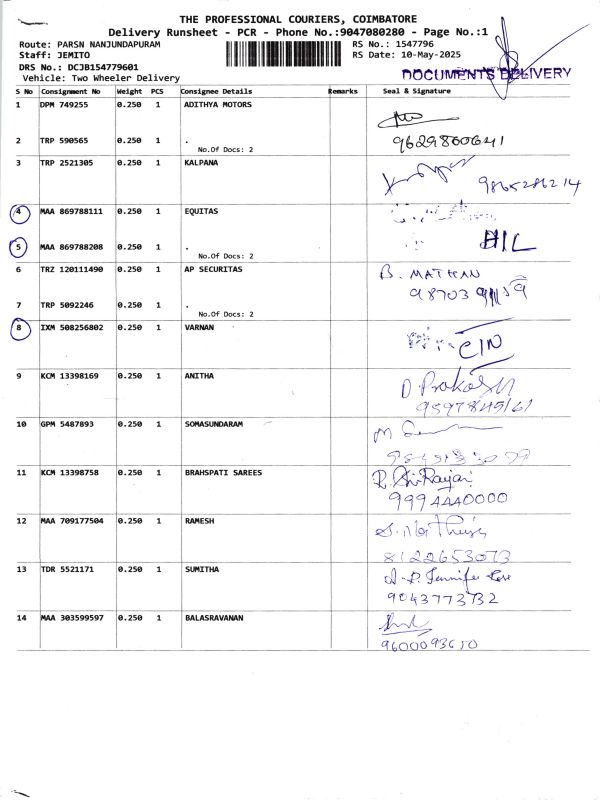 THE PROFESSIONAL COURIERS, COIMBATORE
Delivery Runsheet - PCR - Phone No.:9047080280 - Page No.:1
Route: PARSN NANJUNDAPURAM RS No.: 1547796
Staff: JEMITO RS Date: 10-May-2025
DRS No.: DCJB154779601
Vehicle: Two Wheeler Delivery DOCUMENTS DELIVERY
S No Consignment No Weight PCS Consignee Details Remarks Seal & Signature
1 DPM 749255 0.250 1 ADITHYA MOTORS
2 TRP 590565 0.250 1 . 9629800641
No.Of Docs: 2
3 TRP 2521305 0.250 1 KALPANA
9865286214
4 MAA 869788111 0.250 1 EQUITAS
5 MAA 869788208 0.250 1 . HIL
No.Of Docs: 2
6 TRZ 120111490 0.250 1 AP SECURITAS B. MATHAN
7 TRP 5092246 0.250 1 .
No.Of Docs: 2
8 IXM 508256802 0.250 1 VARNAN
CIN
9 KCM 13398169 0.250 1 ANITHA D. Prakash
10 GPM 5487893 0.250 1 SOMASUNDARAM
11 KCM 13398758 0.250 1 BRAHSPATI SAREES
9994440000
12 MAA 709177504 0.250 1 RAMESH
8122653073
13 TDR 5521171 0.250 1 SUMITHA
9043773732
14 MAA 303599597 0.250 1 BALASRAVANAN
9600093650